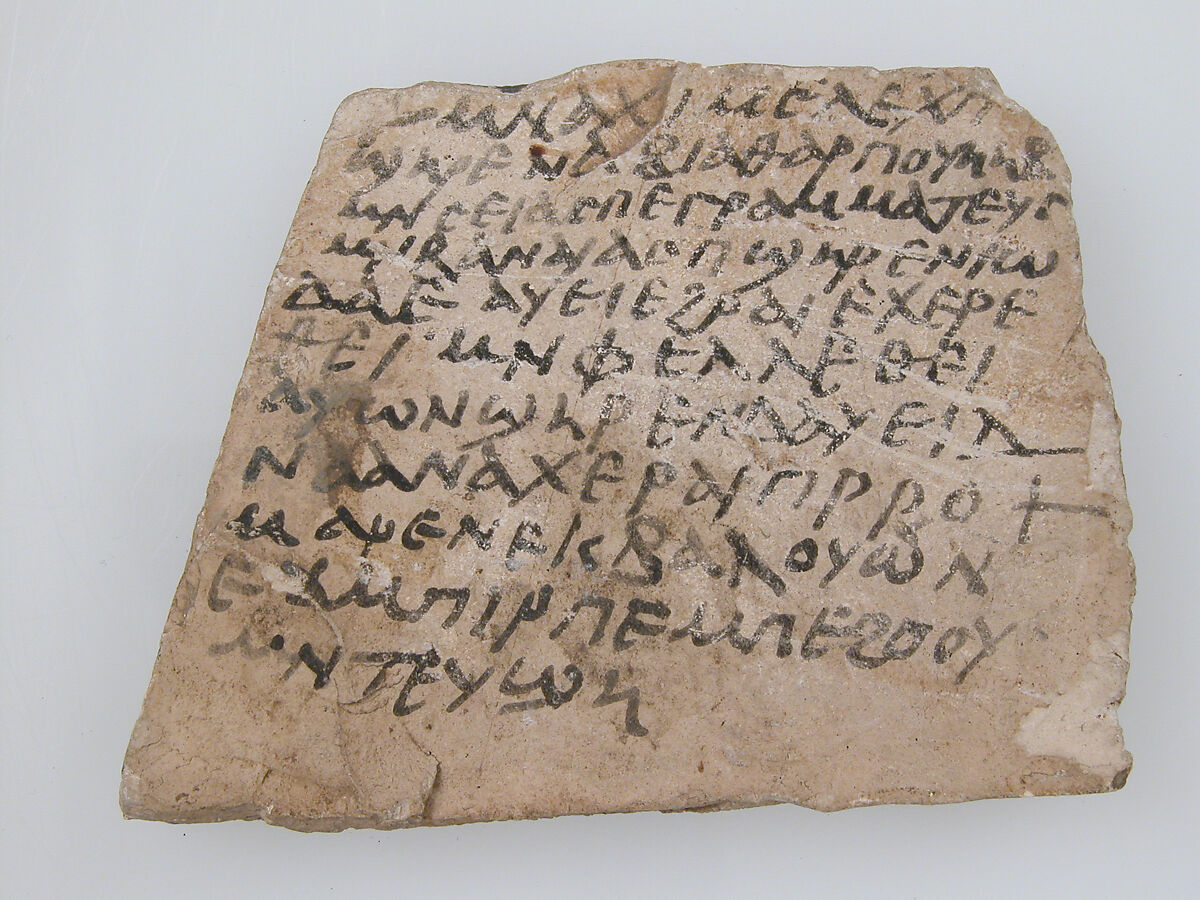 ⲙⲛⲁⲭⲓⲙⲉⲗⲉⲭⲡ
ϣⲏⲣⲉⲛⲁⲃⲓⲁⲑⲁⲣⲡⲟⲩⲏⲏⲃ
ⲙⲛⲥⲉⲓⲁⲥⲡⲉⲅⲣⲁⲙⲙⲁⲧⲉⲩⲥ
ⲙⲛⲃⲁⲛⲁⲓⲁⲥⲡϣⲏⲣⲉⲛⲓⲱ
ⲇⲁⲉ ⲁⲩⲉⲓⲉϩⲣⲁⲓ ⲉⲭⲉⲣⲉ
ⲑⲉⲓ ⲙⲛⲫⲉⲗⲗⲉⲑⲉⲓ
ⲁⲩⲱⲛϣⲏⲣⲉⲛⲇⲁⲩⲉⲓⲇ
ⲛⲁⲁⲛⲁⲭⲉⲣⲁⲩⲡⲣⲣⲟ ⳨
ⲙⲁⲣⲉⲛⲉⲕⲃⲁⲗⲟⲩⲱⲛ
ⲉϫⲙⲡⲓⲣⲡⲉⲙⲡⲉϩⲟⲟⲩ
ⲙⲛⲧⲉⲩϣⲏ